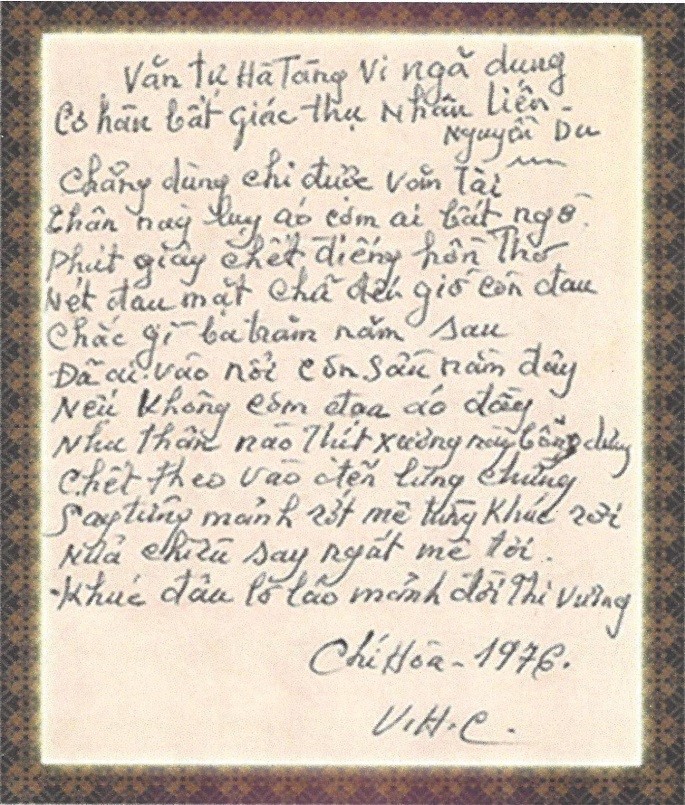 Văn tự Hà Tằng Vi ngã dụng
Cơ hàn bất giác thụ Nhân Liên -
Nguyễn Du
Chẳng dùng chi được văn Tài
Thân này lụy áo cơm ai bất ngờ.
Phút giây chết điếng hồn Thơ
Nét đau mặt chữ đến giờ còn đau
Chắc gì ba trăm năm sau
Đã ai vào nổi cơn sầu năm đây
Nếu Không cơm đọa áo đầy
Như thần nào Thịt xương này bỗng dưng
Chết theo vào đến lưng chừng
Say từng mảnh rớt mê từng Khúc rơi
Nửa chiều say ngất mê tơi.
Khúc đâu lỡ lão mảnh đời Thi Vương
Chí Hòa - 1976.
V.H.C.